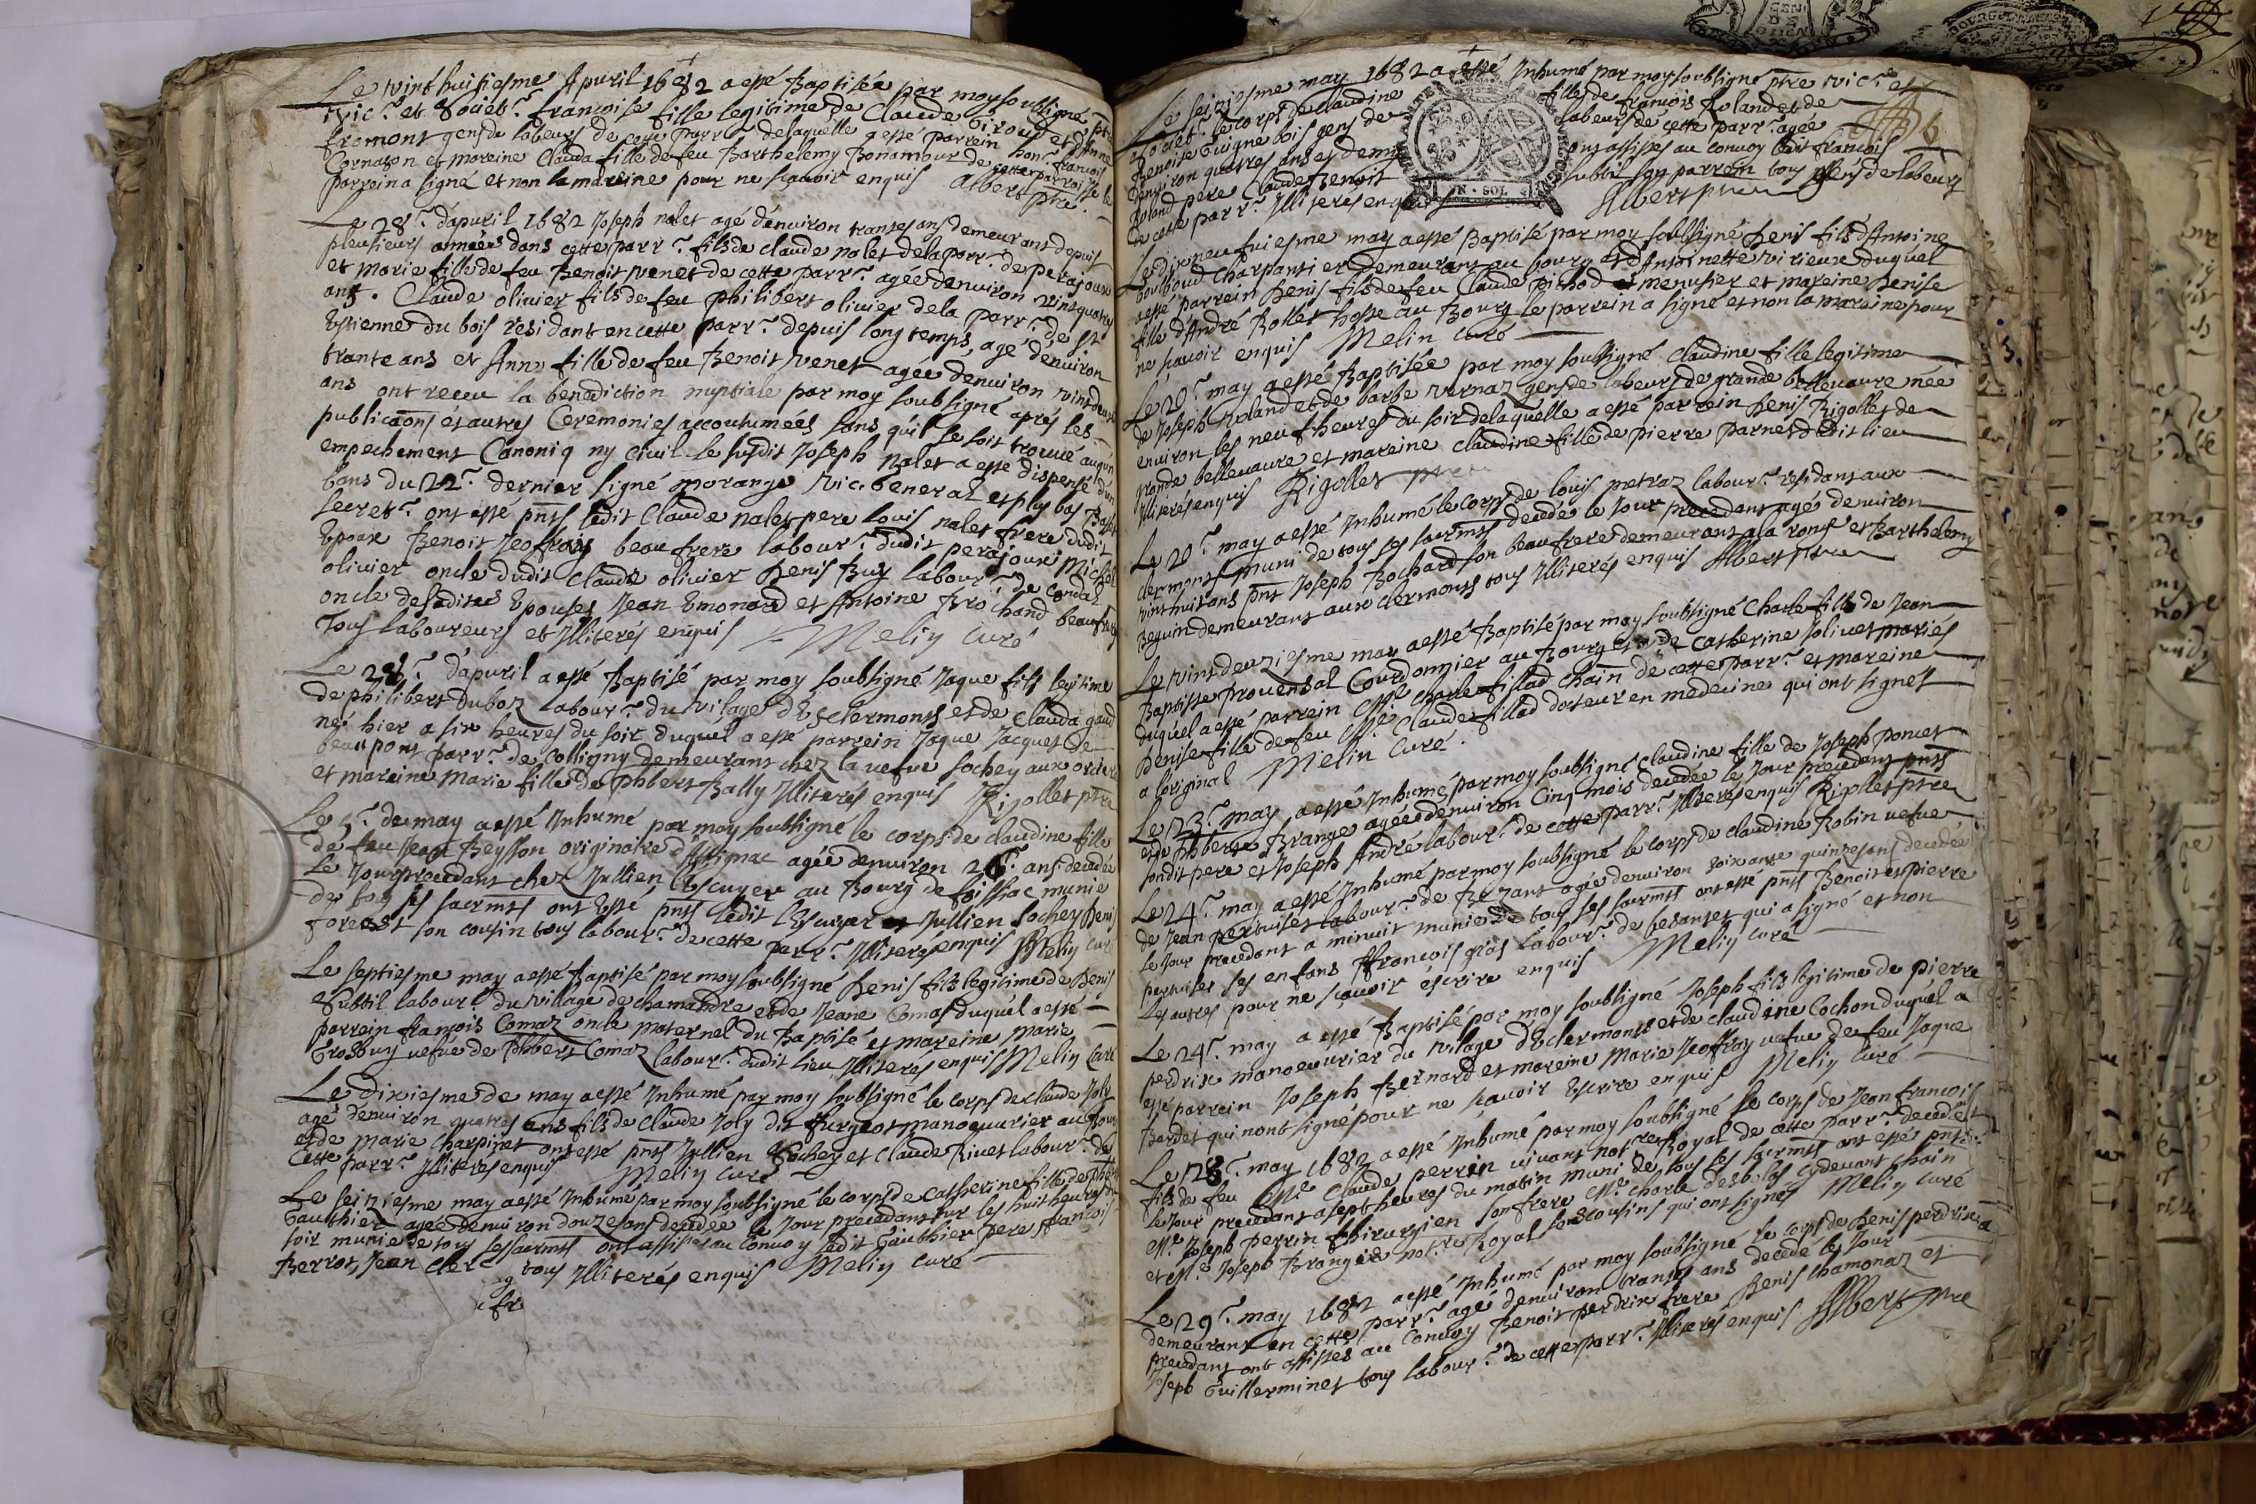 Le vint huitiesme Apuril 1682 a esté Baptisée par moy soubsigné ptre
vic.re et Sociét.re francoise fille legitime de Claude Giroud et d'Anne
fremont gens de labeurs de cette parr.e delaquelle a esté parrein hon. francois
Cornaton et mareine Clauda fille de feu Barthelemy Bonambour de cette parroisse le
parrein a signé et non la mareine pour ne scavoir enquis Albert ptre
Le 28.e d'apuril 1682 Joseph nalet agé d'enuiron trantes ans demeurant depuis
plusieurs années dans cette parr.e fils de claude nalet dela parr.e de perajoux
et Marie fille de feu Benoit venet de cette parr.e agée denuiron vintquatre
ans. Claude oliuier fils de feu philibert oliuier dela parr.e de St
Estienne du bois residant en cette parr.e depuis long temps, agé d'enuiron
trante ans et Anne fille de feu Benoit venet agée denuiron vintdeux
ans ont receu la benediction nuptiale par moy soubsigné aprés les
publicaons et autres Ceremonies accoutumées sans quil se soit trouué aucun
empechement Canoniq ny ciuil le susdit Joseph nalet a esté dispensé d'un
bans du 22.e dernier signé morange vic. General et plus bas Basset
secret.re ont esté pnts ledit Claude nalet pere Louis nalet frere dudit
Epoux Benoit Jeoffray beau frere labour.r dudit perajoux Michel
oliuier oncle dudit Claude oliuier Denis Buy labour.r de Condal
oncle desdites Epouses Jean Emonard et Antoine Brochand beaufreres
Tous laboureurs et Illiterés enquis Melin Curé
Le 28.e d'apuril a esté Baptisé par moy soubsigné Jaque fils legitime
de philibert Duboz labour.r du vilage d'Esclermonts et de Clauda gaud
né hier a six heures du soir duquel a esté parrein Jaque Jacquet de
beaupont parr.e de Colligny demeurant chez la uefue sochey aux
et mareine Marie fille de phbert Bally Illiterés enquis Rigollet ptre
Le 5.e de may a esté Inhumé par moy soubsigné le corps de claudine fille
de feu Jean Beysson originaire agée denuiron 26.e ans decedée
Le Jour precedant chez Jullien Lescuyer au Bourg de foissiac munie
de tous ses sacrmts ont Esté pnts ledit Lescuyer et Jullien Sochey Denis
forest son cousin tous labour.r de cette parr.e Illiterés enquis Melin Curé
Le septiesme may a esté Baptisé par moy soubsigné Denis fils legitime de Denis
subtil labour.r du village de chamandre et de Jeane Comas duquel a esté
parrein francois Comaz oncle maternel du Baptisé et mareine Marie
Grosbuy uefue de Phbert Comaz labour.r dudit lieu Illiterés enquis Melin Curé
Le dixiesme de may a esté Inhumé par moy soubsigné le corps de claude Joly
agé denuiron quatres ans fils de Claude Joly dit furgeot manoeuurier au Bourg
et de marie Charpinet ont esté pnts Jullien Sochey et Claude Riuet labour.r de
Cette parr.e Illiterés enquis Melin Curé
Le seiziesme may a esté Inhumé par moy soubsigné le corps de Catherine fille de Phbert
Gauthier agée denuiron douze ans decedée le Jour precedant sur les huit heures du
soir munie de tous ses sacrmts ont assistés au Conuoy ledit Gauthier pere francois
Berrot, Jean Clerc tous Illiterés enquis Melin Curé
Le seiziesme may 1682 a esté Inhumé par moy soubsigné ptre vic.re et
sociét.re le corps de Claudine fille de francois Roland et de
Benoite Guigne bois gens de labeurs de cette parr.e agée
denuiron quatres ans et demy ont assistés au conuoy ledit francois
Roland pere Claude Benoit subtil son parrein tous gens de labeurs
de cette parr.e Illiterés enquis Albert ptre
GEN · SOL
Le dix neufuiesme may a esté Baptisé par moy soubsigné Denis fils d'Antoine
bourboud Charpantier demeurant au bourg et d'Antoinette virieux duquel
a esté parrein Denis fils de feu Claude pichod menusier et mareine Denise
fille d'André Rollet hoste au Bourg le parrein a signé et non la mareine pour
ne scavoir enquis Melin Curé
Le 20.e may a esté Baptisée par moy soubsigné Claudine fille legitime
de Joseph Roland et de barbe vernaz gens de labeurs de grande belleuaure née
enuiron les neuf heures du soir delaquelle a esté parrein Denis Rigollet de
grande belleuaure et mareine claudine fille de pierre parnet dudit lieu
Illiterés enquis Rigollet ptre
Le 20.e may a esté Inhumé le corps de louis metraz labour.r residant aux
clermonts muni de tous ses sacrmts decedé le Jour precedant agé denuiron
vint huit ans pnt Joseph Bochard son beau frere demeurant a la rons et Barthelemy
Beguin demeurant aux clermonts tous Illiterés enquis Albert ptre
Le vint deuziesme may a esté Baptisé par moy soubsigné Charle fils de Jean
Baptiste prouensal Courdonnier au Bourg et de Catherine Joliuet mariés
duquel a esté parrein M.re Charle fillad chain de cette parr.e et mareine
Denise fille de feu M.re Claude fillad docteur en medecine qui ont signés
a loriginal Melin Curé
Le 23.e may a esté Inhumé par moy soubsigné Claudine fille de Joseph poncet
et de Phberte Brange agée denuiron Cinq mois decedée le Jour precedant pnts
sondit pere et Joseph André labour.r de cette parr.e Illiterés enquis Rigollet ptre
Le 24.e may a esté Inhumé par moy soubsigné le corps de claudine Robin uefue
de Jean pertuiset labour.r de Bezant agée denuiron soixante quinze ans decedée
le Jour precedant a minuit munie de tous ses sacrmts ont esté pnts Benoit et pierre
pertuiset ses enfans francois gras labour.r de besantet qui a signé et non
les autres pour ne scauoir escrire enquis Melin Curé
Le 24.e may a esté Baptisé par moy soubsigné Joseph fils legitime de pierre
perdrix manoeuurier du vilage d'Eclermonts et de claudine Cochon duquel a
esté parrein Joseph Bernard et mareine Marie Jeoffray uefue de feu Jaque
Bardet qui nont signé pour ne scauoir Escrire enquis Melin Curé
Le 28.e may 1682 a esté Inhumé par moy soubsigné le corps de Jean francois
fils de feu M.re Claude perrin viuant not.re Royal de cette parr.e decedé
le Jour precedant a sept heures du matin muni de tous ses sacrmts ont esté pnts
M.re Joseph perrin chirurgien son frere M.re charle desbelles cydeuant chain
et M.re Joseph Brangier not.re Royal ses cousins qui ont signés Melin Curé
Le 29.e may 1682 a esté Inhumé par moy soubsigné le corps de Denis perdrix
demeurant en cette parr.e agé denuiron trantes ans decedé le Jour
precedant ont assistés au Conuoy Benoit perdrix frere Denis Chamonaz et
Joseph Guillerminet tous labour.r de cette parr.e Illiterés enquis Albert ptre